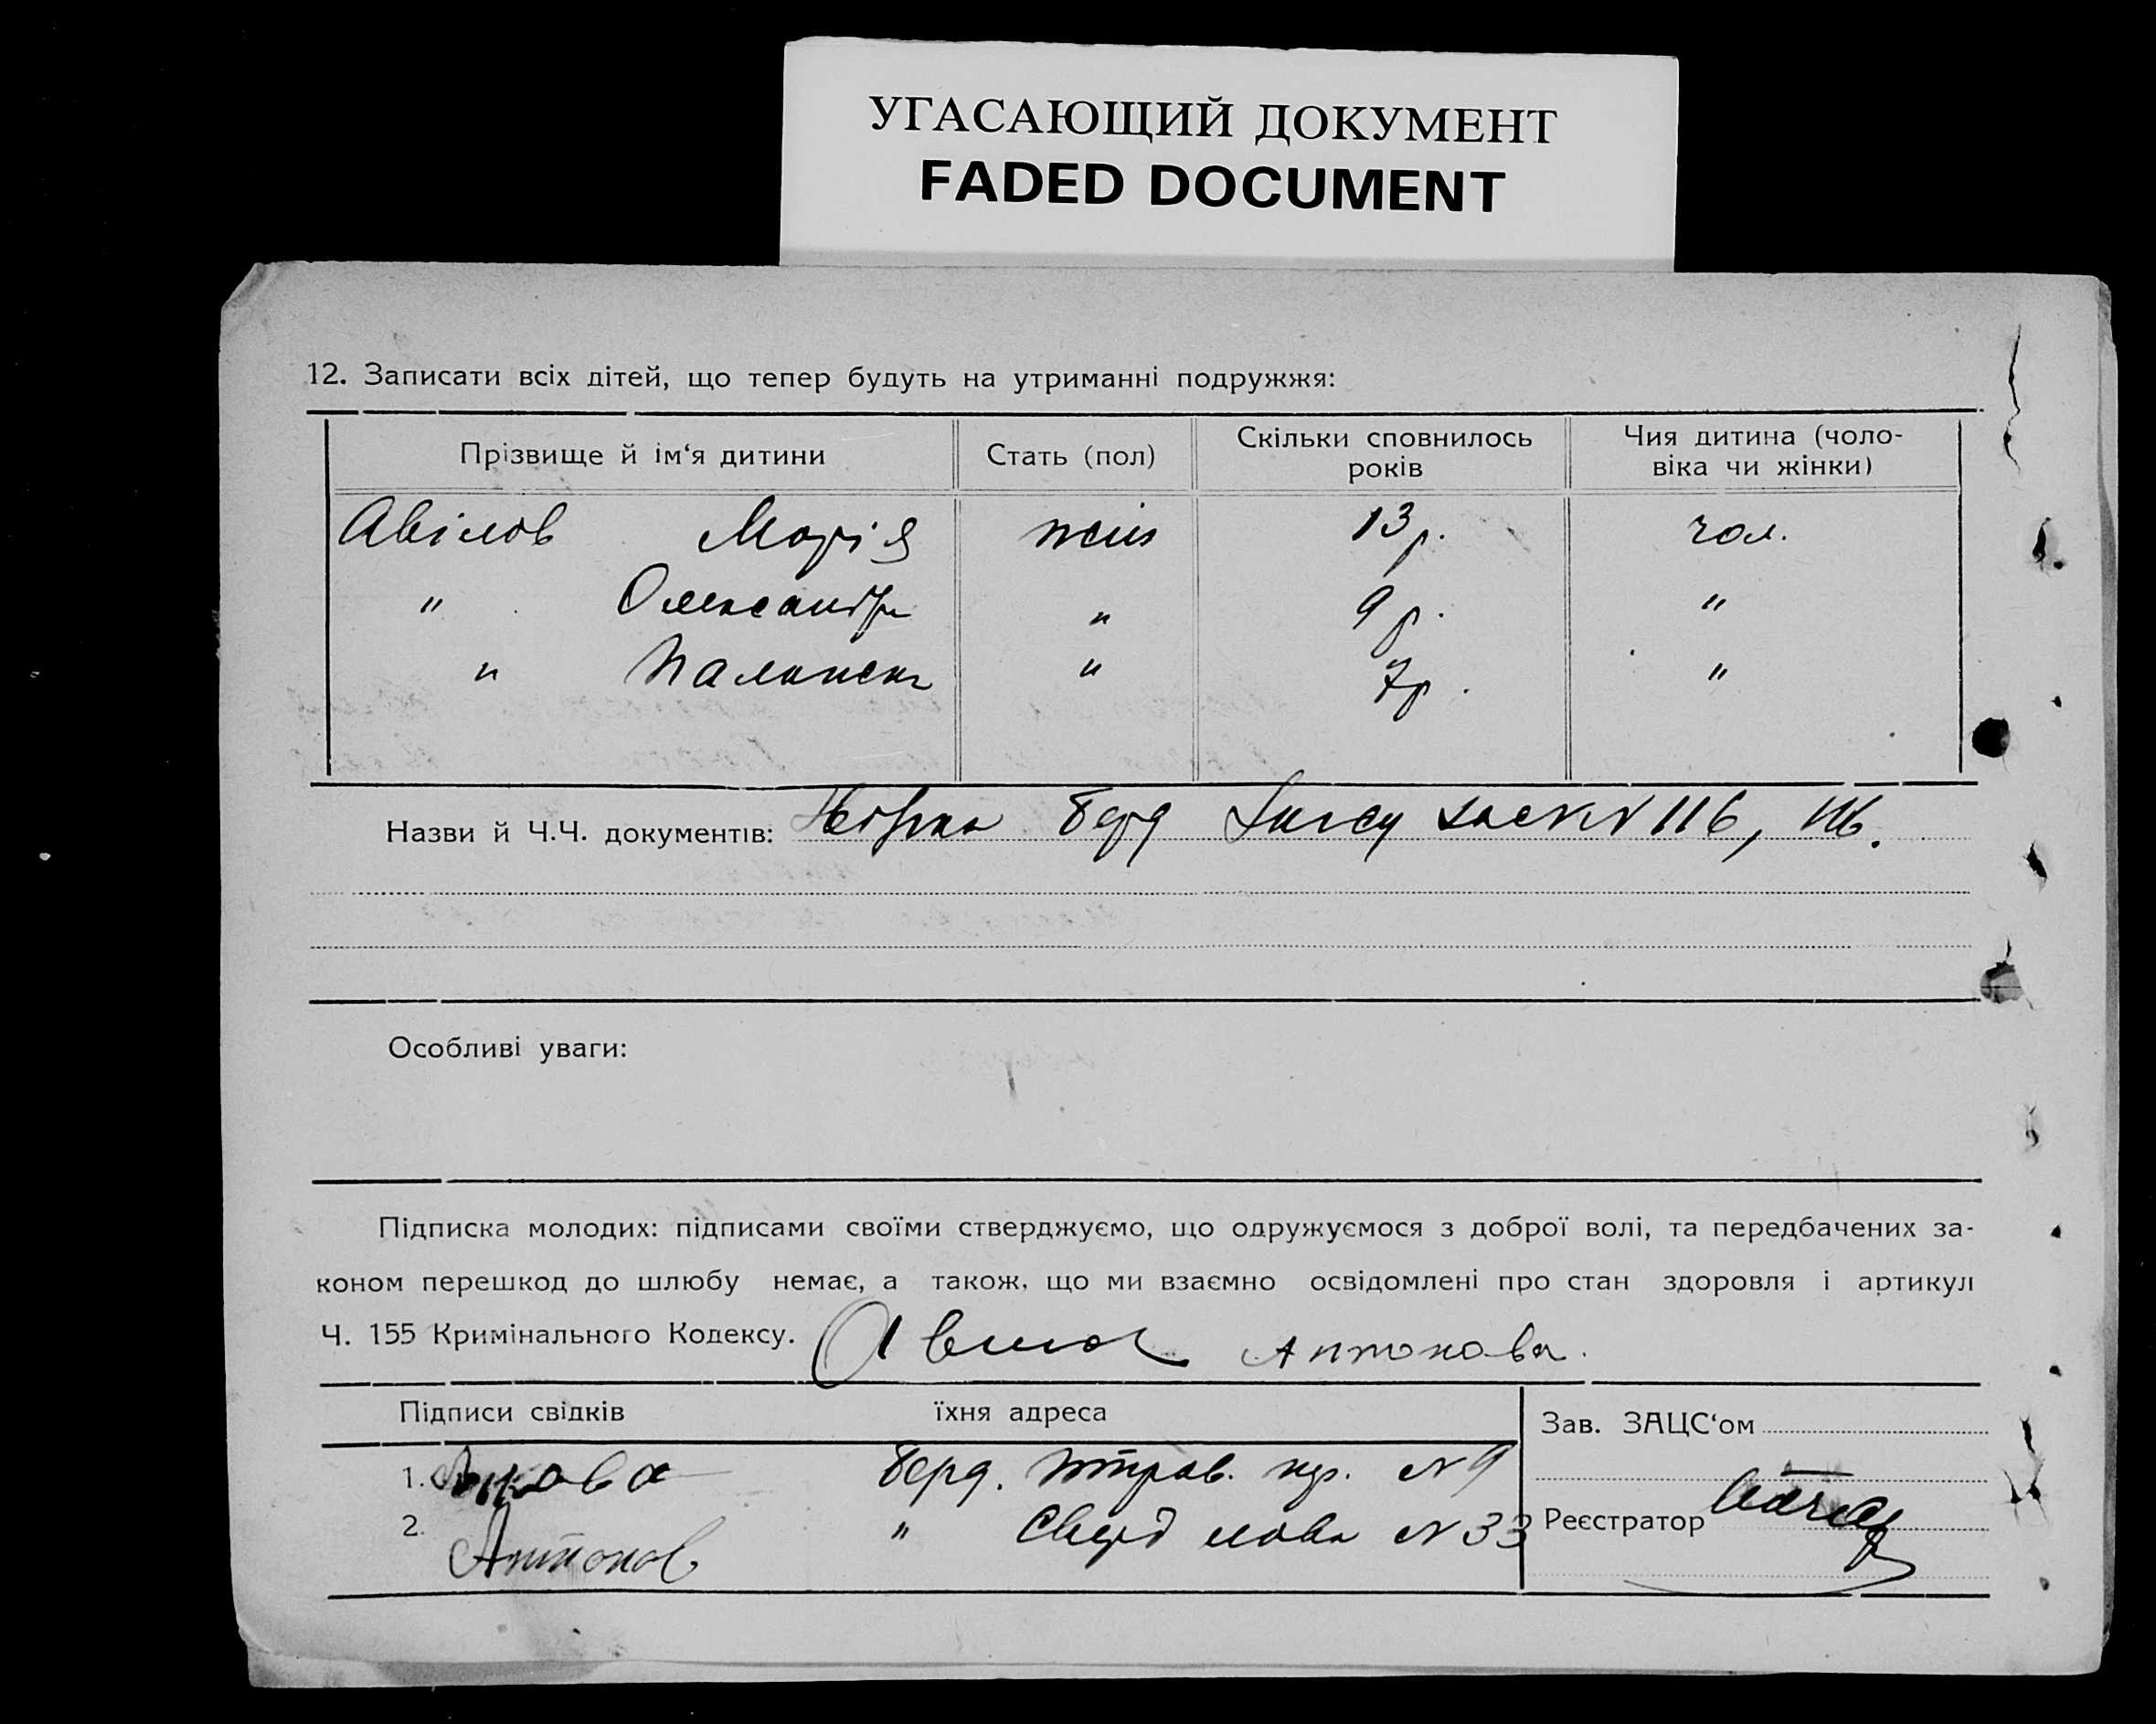 УГАСАЮЩИЙ ДОКУМЕНТ
FADED DOCUMENT
12. Записати всіх дітей, що тепер будуть на утриманні подружжя:
Прізвище й ім‘я дитини Стать (пол) Скільки сповнилось років Чия дитина (чоловіка чи жінки)
Авілов Марія жін 13 р. чол.
" Олександр " 9 р. "
" " 7 р. "
Назви й Ч.Ч. документів: Берд N 116, 116.
Особливі уваги:
Підписка молодих: підписами своїми стверджуємо, що одружуємося з доброї волі, та передбачених за-
коном перешкод до шлюбу немає, а також, що ми взаємно освідомлені про стан здоровля і артикул
Ч. 155 Кримінального Кодексу. Авилов Антонова.
Підписи свідків їхня адреса Зав. ЗАЦС‘ом
1. Берд. N 9
2. Антонов " Свердлова N 33 Реєстратор